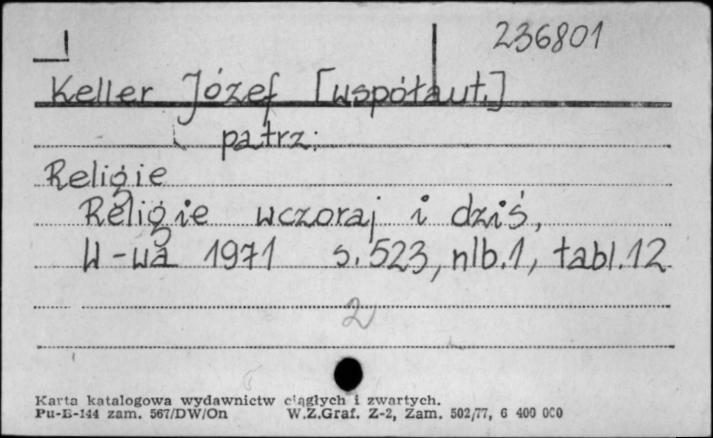 236801
Keller Józef [współaut.]
patrz:
Religie
Religie wczoraj i dziś,
W-wa 1971 s. 523, nlb. 1, tabl. 12
2
Karta katalogowa wydawnictw ciągłych i zwartych.
Pu-B-144 zam. 567/DW/On W.Z.Graf. Z-2, Zam. 502/77, 6 400 000